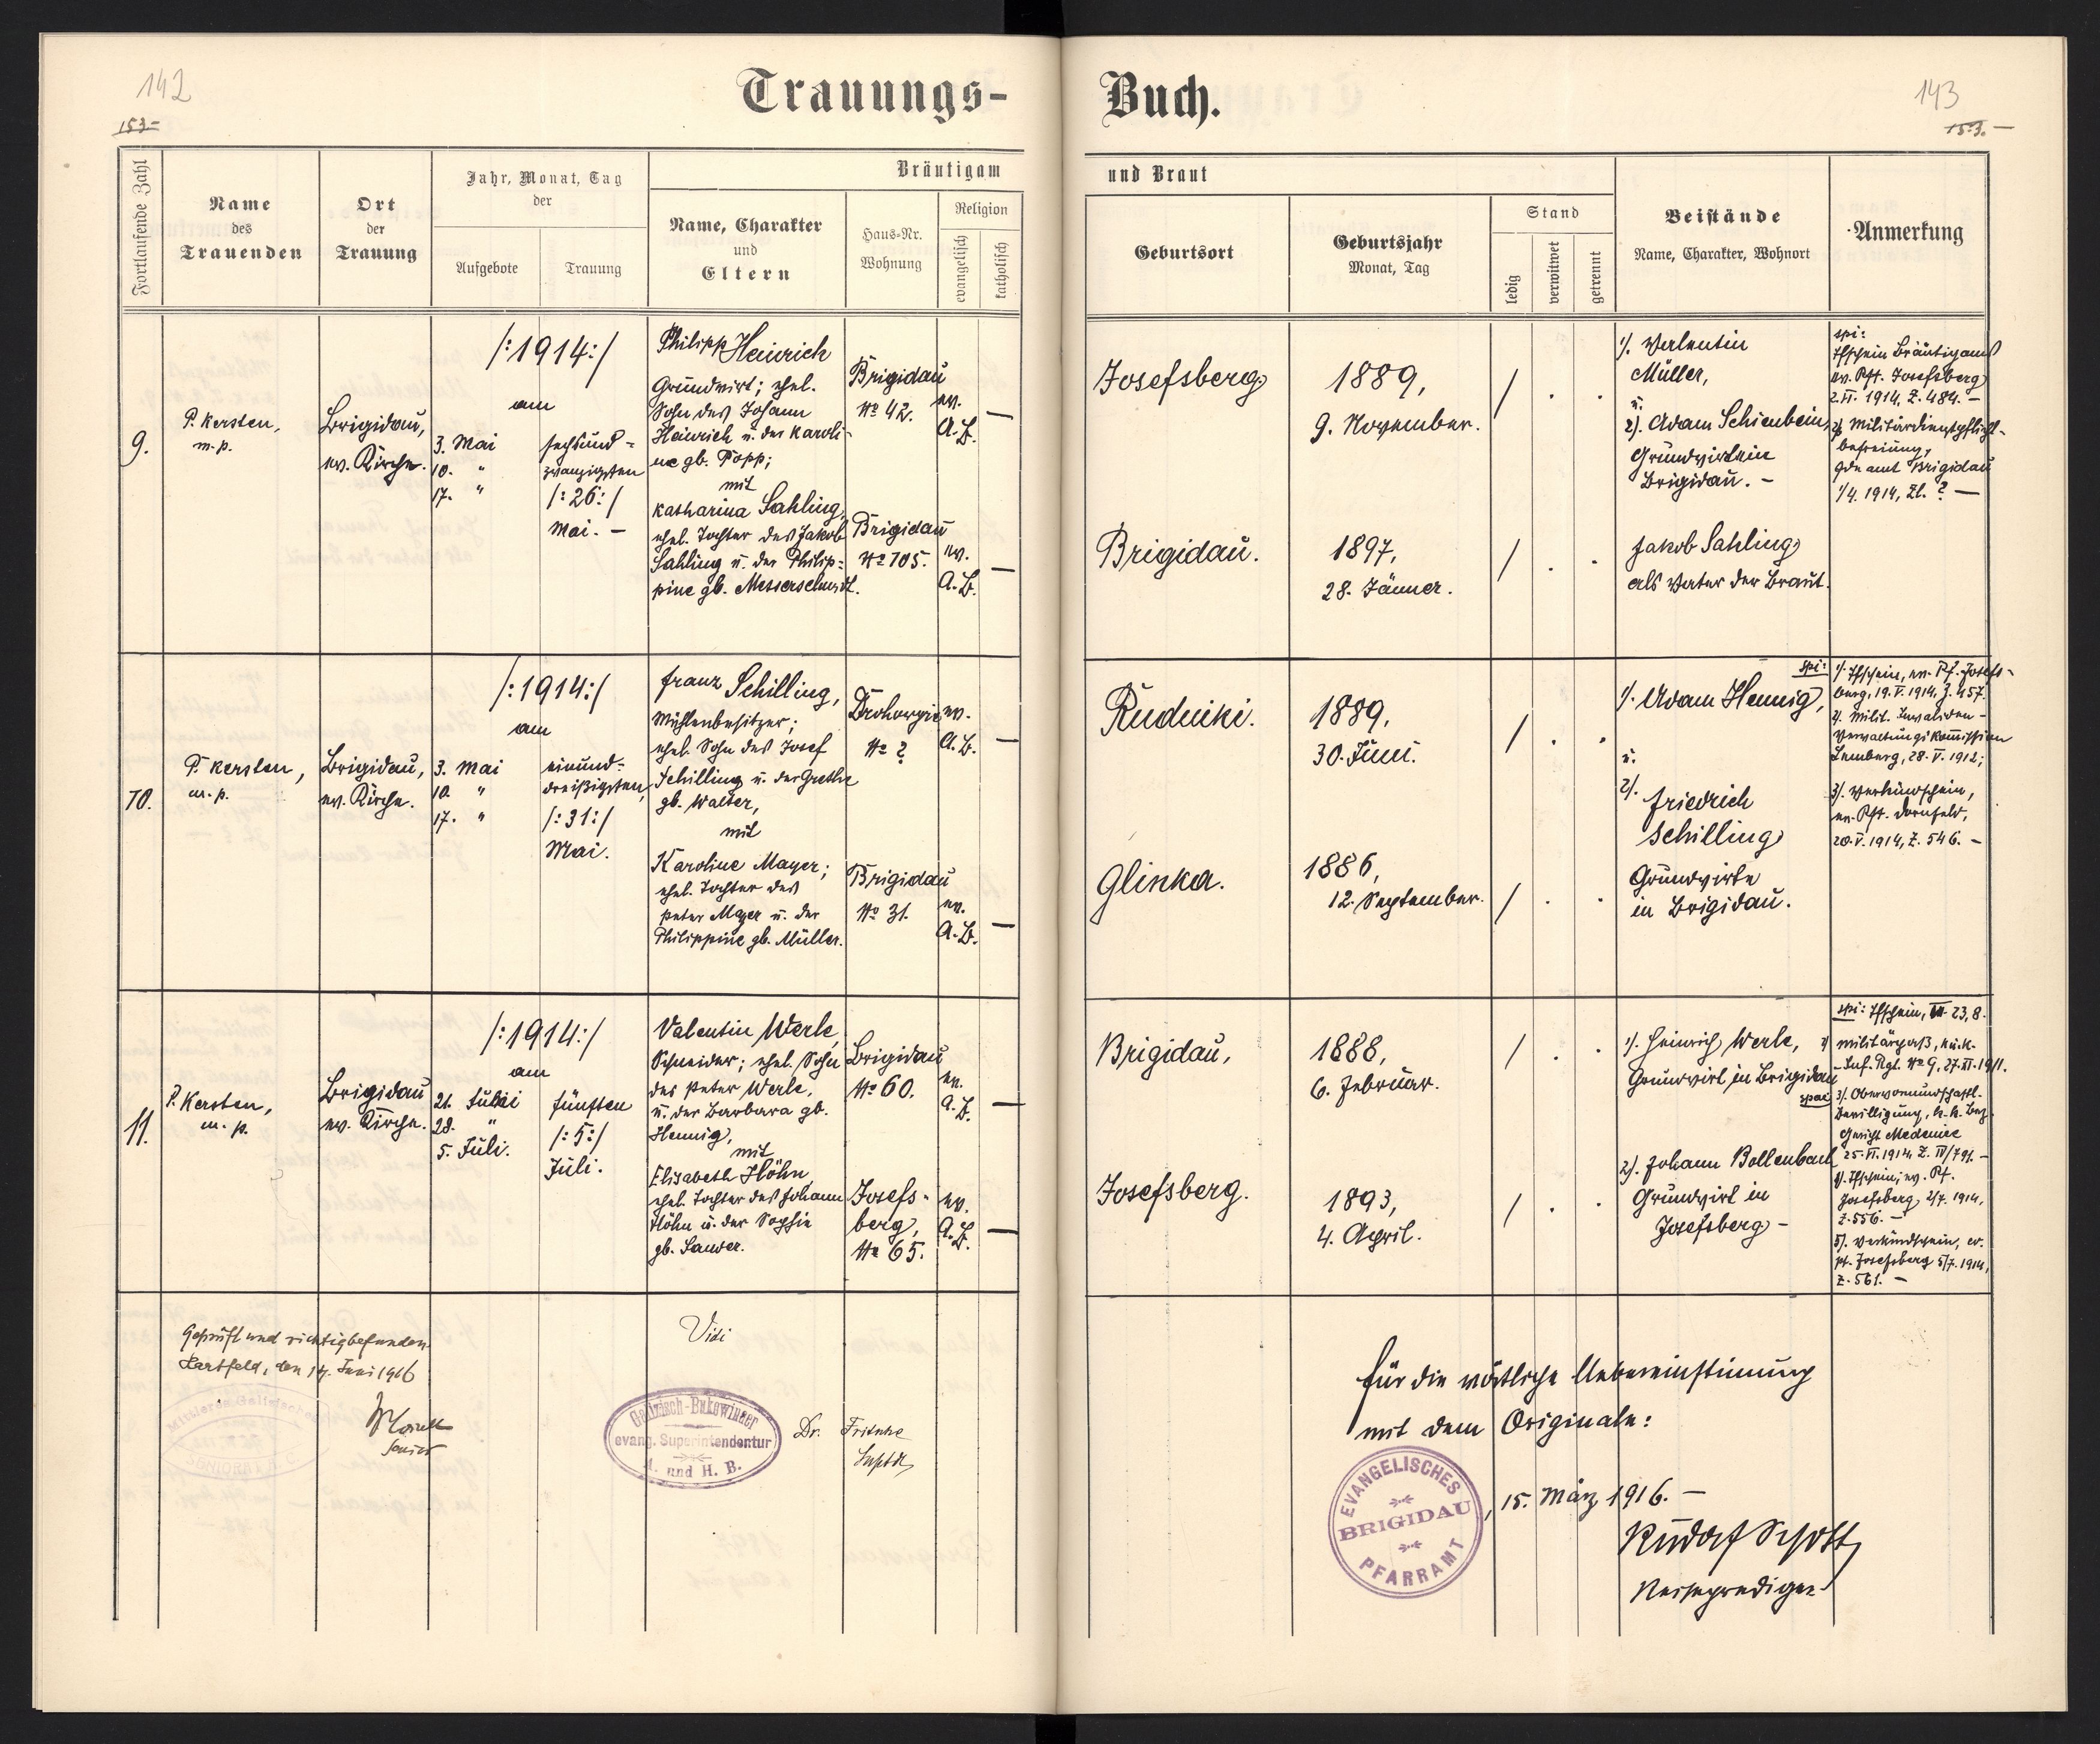 142
153-
Trauungs-
Fortlaufende Zahl
Name
des
Trauenden
Ort
der
Trauung
Jahr, Monat, Tag
der
Aufgebote
Trauung
Bräutigam
Name, Charakter
und
Eltern
Haus-Nr.
Wohnung
Religion
evangelisch
katholisch
9.
P. Kersten,
m.p.
Brigidau,
ev. Kirche.
/:1914:/
am
3. Mai
10. "
17. "
sechsund=
zwanzigsten
/:26:/
Mai. –
Philipp Heinrich
Grundwirt; ehel.
Sohn des Johann
Heinrich u. der Karoli-
ne gb. Popp;
mit
Katharina Sahling,
ehel. Tochter des Jakob
Sahling u. der Philip=
pine gb. Messerschmidt.
Brigidau
No 42.
ev.
A.B.
–
Brigidau
No 105.
ev.
A.B.
–
10.
P. Kersten,
m.p.
Brigidau,
ev. Kirche.
/:1914:/
am
3. Mai
10. "
17. "
einund=
dreißigsten,
/:31:/
Mai.
Franz Schilling,
Mühlenbesitzer;
ehel. Sohn des Josef
Schilling u. der Grethe
gb. Walter,
mit
Karoline Mayer;
ehel. Tochter des
Peter Mayer u. der
Philippine gb. Müller.
No ?
ev.
A.B.
–
Brigidau
No 31.
ev.
A.B.
–
11.
P. Kersten,
m.p.
Brigidau
ev. Kirche.
/:1914:/
am
21.
28. "
5. Juli.
fünften
/:5:/
Juli.
Valentin Werle,
Schneider; ehel. Sohn
des Peter Werle,
u. der Barbara gb.
Hennig,
mit
Elisabeth Höhn,
ehel. Tochter des Johann
Höhn u. der Sophie
gb. Sauer.
Brigidau
No 60.
ev.
A.B.
–
Josefs-
berg,
No 65.
ev.
A.B.
–
Geprüft und richtig befunden.
Hartfeld, den 14. Juni 1916
Senior
SENIORAT A. C.
Vidi
Galizisch-Bukowinaer
evang. Superintendentur
A. und H. B.
Dr. Fritsche
Suptdt
143
153.-
Buch.
und Braut
Geburtsort
Geburtsjahr
Monat, Tag
Stand
ledig
verwitwet
getrennt
Beistände
Name, Charakter, Wohnort
Anmerkung
Josefsberg
1889,
9. November.
/ . .
Brigidau.
1897,
28. Jänner.
/ . .
1). Valentin
Müller,
u.
2). Adam Schienbein,
Grundwirte in
Brigidau. –
Jakob Sahling
als Vater der Braut.
spi:
Tfschein Bräutigams
ev. Pft. Josefsberg
1914, Z. 484. –
2) Militärdienstpflicht-
befreiung,
Gde amt Brigidau
1/4. 1914, Zl. ? –
Rudniki.
1889,
30. Juni.
/ . .
Glinka.
1886,
12. September.
/ . .
1). Adam Hennig,
u.
2).
Friedrich
Schilling
Grundwirte
in Brigidau.
spi:
1). Tfschein, ev. Pf. Josefs-
berg, 19. V. 1914, Z. 457.
2). Milit. Invaliden-
Verwaltungskommission
Lemberg, 28. V. 1912;
3). Verkündschein,
ev. Pft. Dornfeld,
20. V. 1914, Z. 546. –
Brigidau,
1888,
6. Februar.
/ . .
Josefsberg.
1893,
4. April.
/ . .
1). Heinrich Werle,
Grundwirt in Brigidau
2). Johann Bollenbach
Grundwirt in
Josefsberg –
spi: Tfschein,
2) Militärpaß, k.u.k.
Inf. Rgt. No 9, 27. XI. 1911.
3). Obervormundschaftl.
Bewilligung, k. k. Bez.
Gericht Medenice
25. VI. 1914 Z. IV/791. –
4). Tfschein, ev. Pf.
Josefsberg, 2/7. 1914,
Z. 556. –
5). Verkündschein, ev.
Pf. Josefsberg 5/7. 1914,
Z. 561. –
Für die wörtliche Uebereinstimmung
mit dem Originale:
EVANGELISCHES
BRIGIDAU
PFARRAMT
, 15. März 1916. –
Rudolf Schott
Reiseprediger